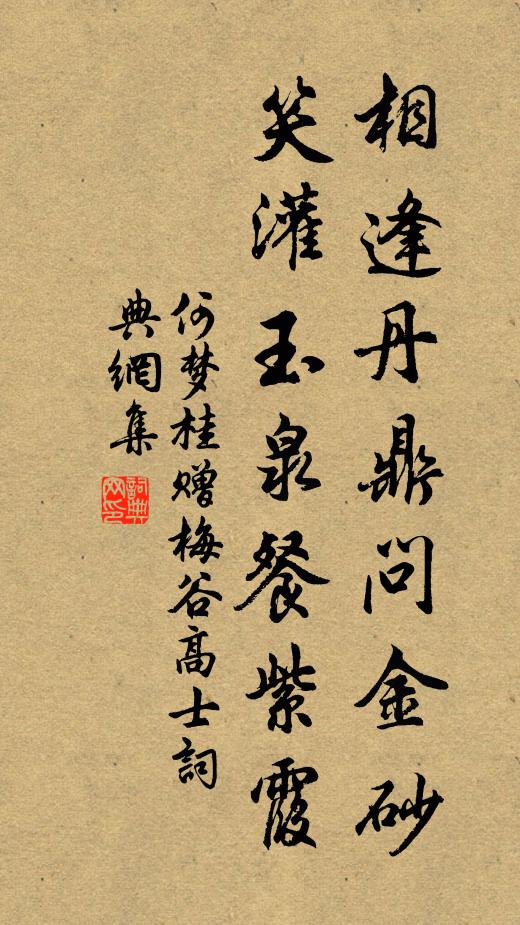 相逢丹鼎問金砂
笑灌玉泉餐紫霞
何梦桂赠梅谷高士詞
典網集
詞典
网印